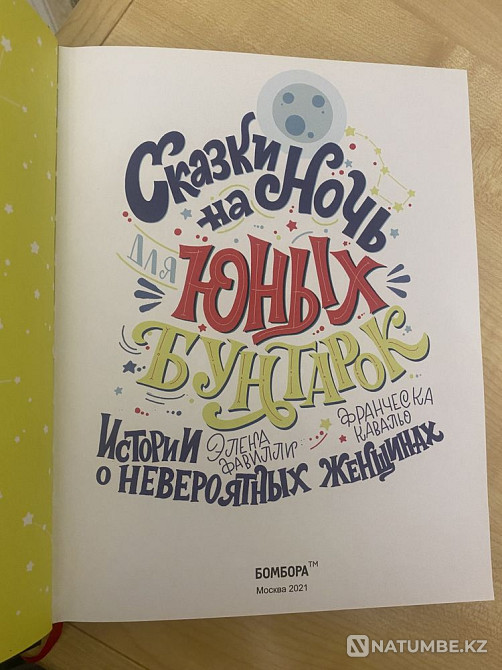 Сказки
на Ночь
для
Юных
Бунтарок
Элена Франческа
Фавилли Кавалло
Истории
о невероятных женщинах
БОМБОРА™
Москва 2021
NATUMBE.KZ